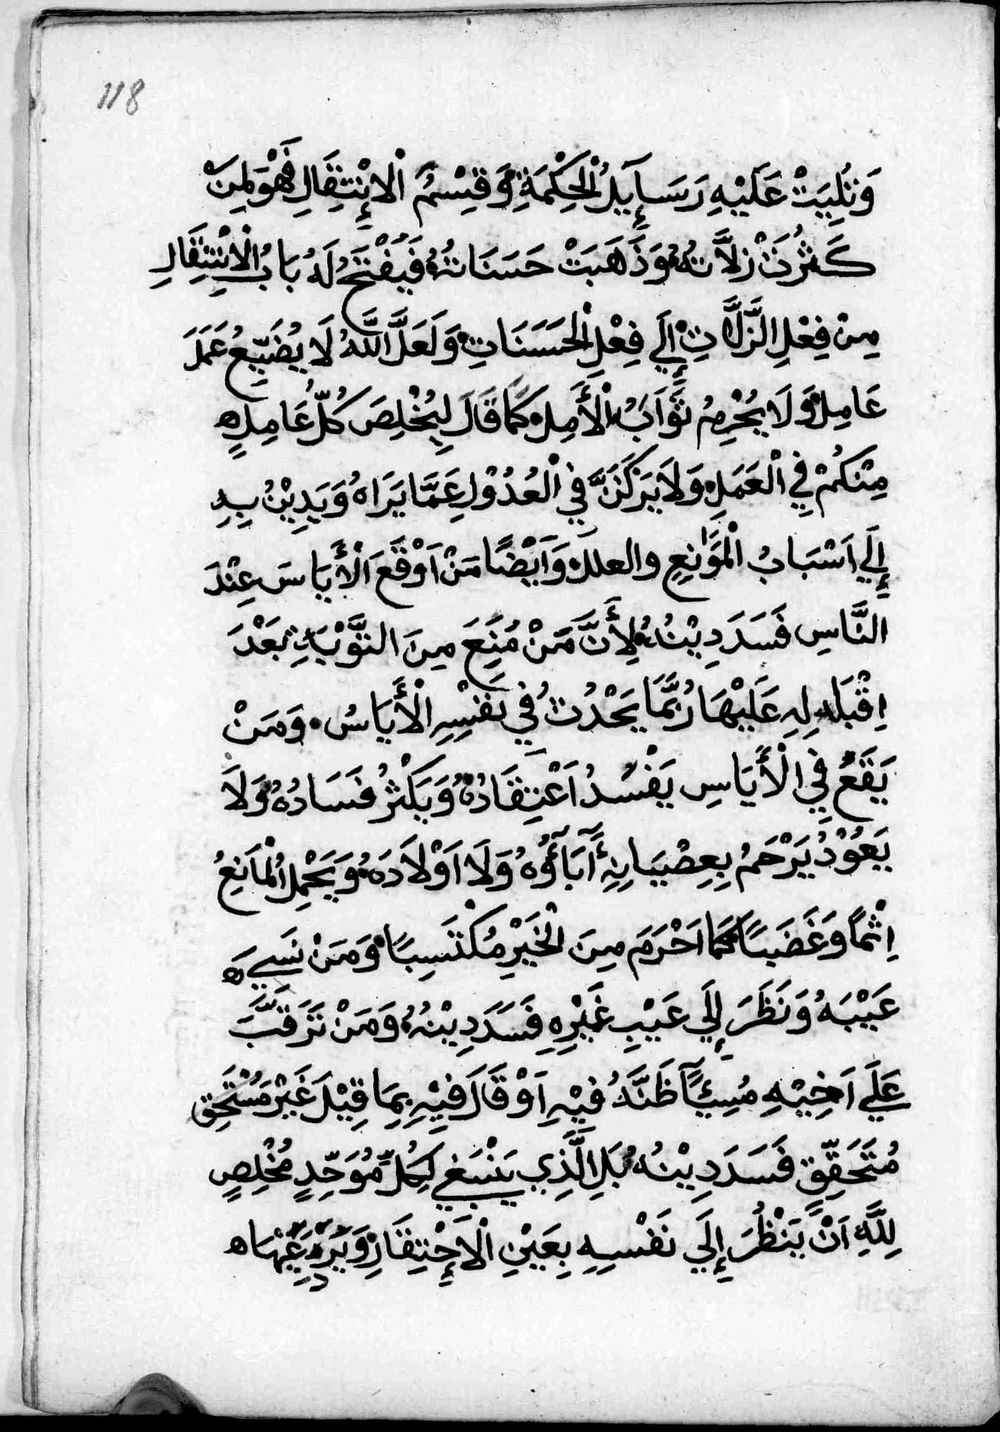 118
وَتُلِيَتْ عَلَيْهِ رَسَايِلُ الْحِكْمَةِ وَقِسْمُ الْاِنْتِقَالِ فَهْوَ لِمَنْ
كَثُرَتْ زَلَّاتُهُ وَذَهَبَتْ حَسَنَاتُهُ فَيُفْتَحُ لَهُ بَابُ الْاِنْتِقَالِ
مِنْ فِعْلِ الزَّلَّاتِ إِلَي فِعْلِ الْحَسَنَاتِ وَلَعَلَّ اللَّهُ لَا يُضَيِّعُ عَمَلَ
عَامِلٍ وَلَا يُحْرِمُ ثَوَابُ الْأَمِلِ كَمَا قَالَ لِيُخْلِصَ كُلُّ عَامِلٍ ه
مِنْكُمْ فِي الْعَمَلِ وَلَا يَرْكَنَّ فِي الْعُدُوْلِ عَمَّا يَرَاهُ وَيَدِيْنُ بِهِ
إِلَي اَسْبَابُ الْمَوَانِعِ والعلل وَاَيْضًا مَنْ اَوْقَعَ الْأَيَاسَ عِنْدَ
النَّاسِ فَسَدَ دِيْنُهُ لِأَنَّ مَنْ مُنِعَ مِنَ التَّوْبَةِ بَعْدَ
اِقْبَالِهِ عَلَيْهَا رُبَّمَا يَحْدُثُ فِي نَفْسِهِ الْأَيَاسُ وَمَنْ
يَقَعُ فِي الْأَيَاسِ يَفْسُدُ اَعْتِقَادُهُ وَيَكْثُرُ فَسَادُهُ وَلَا
يَعُوْدُ يَرْحَمُ بِعِصْيَانِهِ آبَاؤُهُ وَلَا اَوْلَادَهُ وَيَحْمِلُ الْمَانِعُ
اِثْمًا وَغَضَبًا كَمَا اَحْرَمَ مِنَ الْخَيْرِ مُكْتَسِبًا وَمَنْ نَسِيَ ه
عَيْبَهُ وَنَظَرَ إِلَي عَيْبِ غَيْرِهِ فَسَدَ دِيْنُهُ وَمَنْ تَرَقَّبَ
عَلَي اَخِيْهِ مُسِئًا ظَنَّهُ فِيْهِ اَوْ قَالَ فِيْهِ بِمَا قِيْلَ غَيْرَ مُسْتَحِق
مُتَحَقِّقٍ فَسَدَ دِيْنُهُ بَلِ الَّذِي يَنْبَغِي لِكُلِّ مُوَحِّدٍ مُخْلِصٍ
لِلَّهِ اَنْ يَنْظُرَ إِلَي نَفْسِهِ بِعَيْنِ الْاَحْتِقَارِ وَيَرْدَعَهَا ه